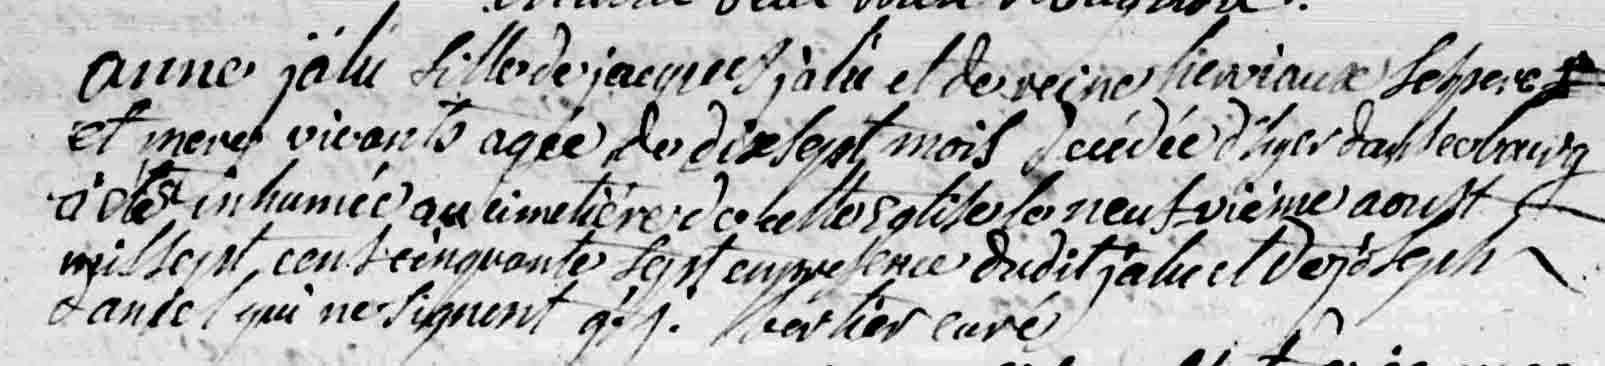 anne jalu fille de jacques jalu et de reine herviaux ses pere
et mere vivants agée de dixsept mois décédée d'hyer dans ce bourg
a été inhumée au cimetiére de cette Eglise le neufvième aoust
mil sept cens cinquante sept en presence dudit jalu et de joseph
daniel qui ne signent
curé